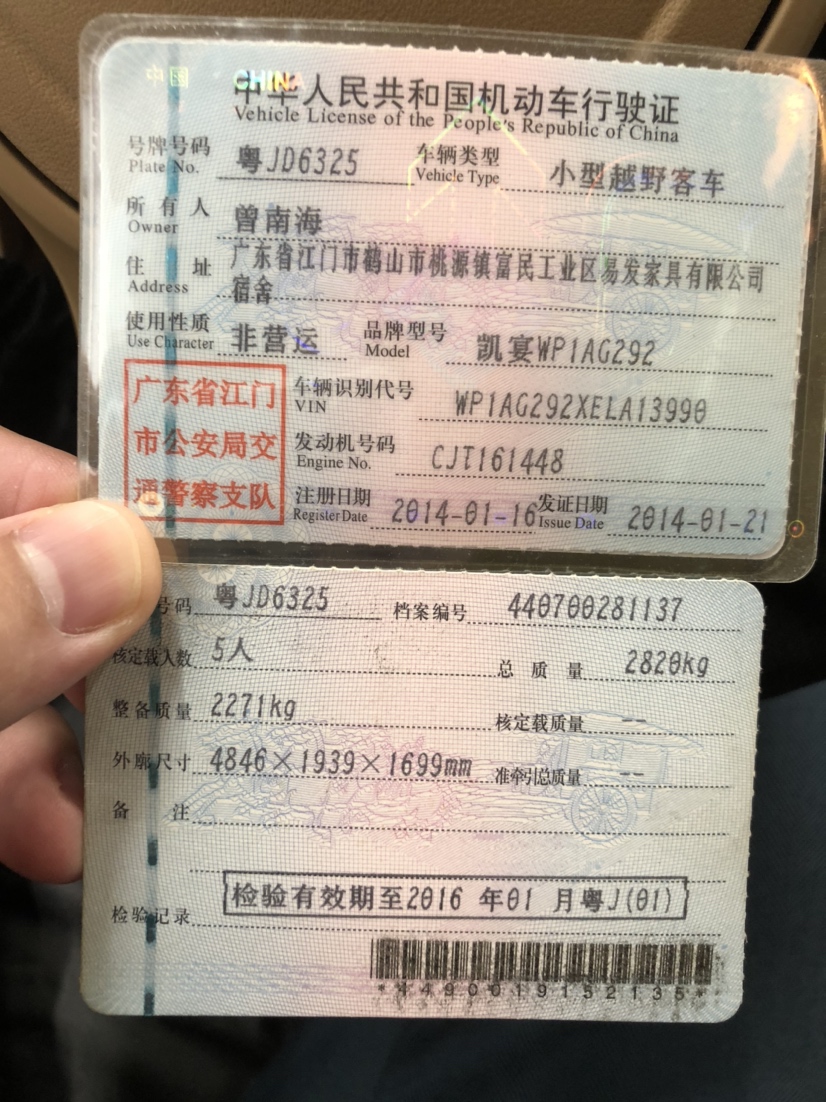 中国 CHINA
中华人民共和国机动车行驶证
Vehicle License of the People's Republic of China
号牌号码 粤JD6325 车辆类型 小型越野客车
Plate No. Vehicle Type
所有人 曾南海
Owner
住址 广东省江门市鹤山市桃源镇富民工业区易发家具有限公司
Address 宿舍
使用性质 非营运 品牌型号 凯宴WP1AG292
Use Character Model
广东省江门
市公安局交
通警察支队
车辆识别代号 WP1AG292XELA13990
VIN
发动机号码 CJT161448
Engine No.
注册日期 2014-01-16 发证日期 2014-01-21
Register Date Issue Date
号码 粤JD6325 档案编号 440700281137
核定载人数 5人 总质量 2820kg
整备质量 2271kg 核定载质量 --
外廓尺寸 4846×1939×1699mm 准牵引总质量 --
备注
检验记录 检验有效期至2016 年01 月粤J(01)
*4490019152135*